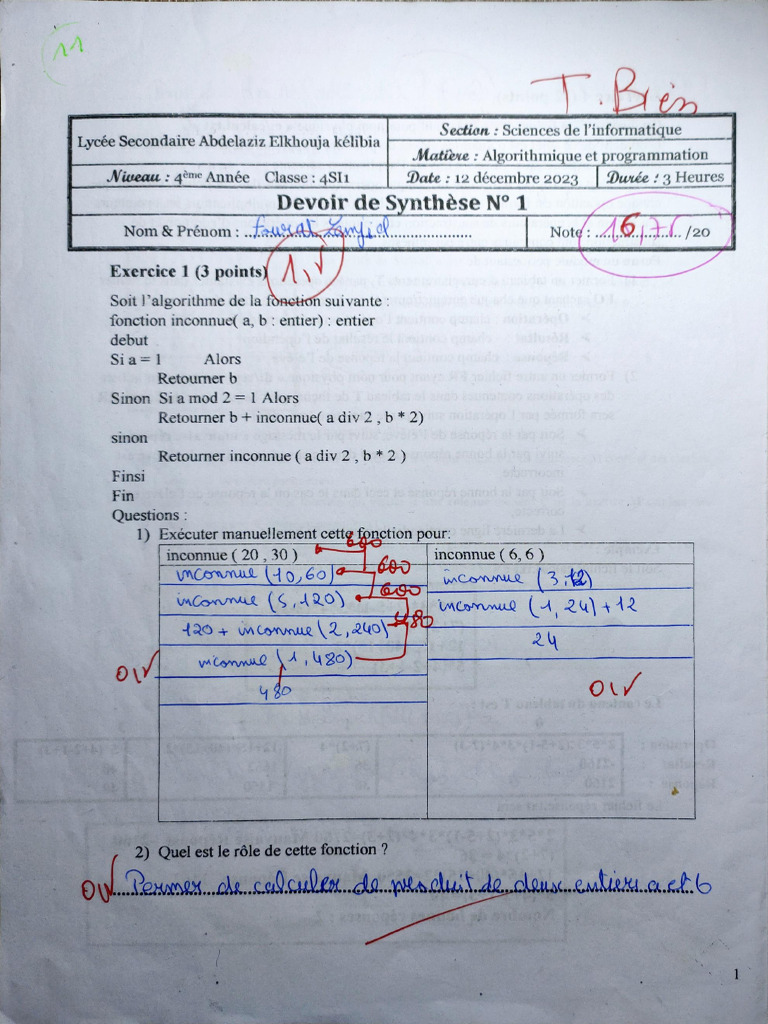 11
T. Bien
Lycée Secondaire Abdelaziz Elkhouja kélibia
Section : Sciences de l'informatique
Matière : Algorithmique et programmation
Niveau : 4ème Année Classe : 4SI1
Date : 12 décembre 2023
Durée : 3 Heures
Devoir de Synthèse N° 1
Nom & Prénom :
Note : 16,75 /20
Exercice 1 (3 points)
Soit l'algorithme de la fonction suivante :
fonction inconnue( a, b : entier) : entier
debut
Si a = 1 Alors
Retourner b
Sinon Si a mod 2 = 1 Alors
Retourner b + inconnue( a div 2 , b * 2)
sinon
Retourner inconnue ( a div 2 , b * 2 )
Finsi
Fin
Questions :
1) Exécuter manuellement cette fonction pour:
600
inconnue ( 20 , 30 )
inconnue (10,60) 600
inconnue (5,120) 600
120 + inconnue (2,240) 480
inconnue (1,480)
480
inconnue ( 6, 6 )
inconnue (3,12)
inconnue (1,24) + 12
24
2) Quel est le rôle de cette fonction ?
Permer de calculer de produit de deux entiers a et b
1